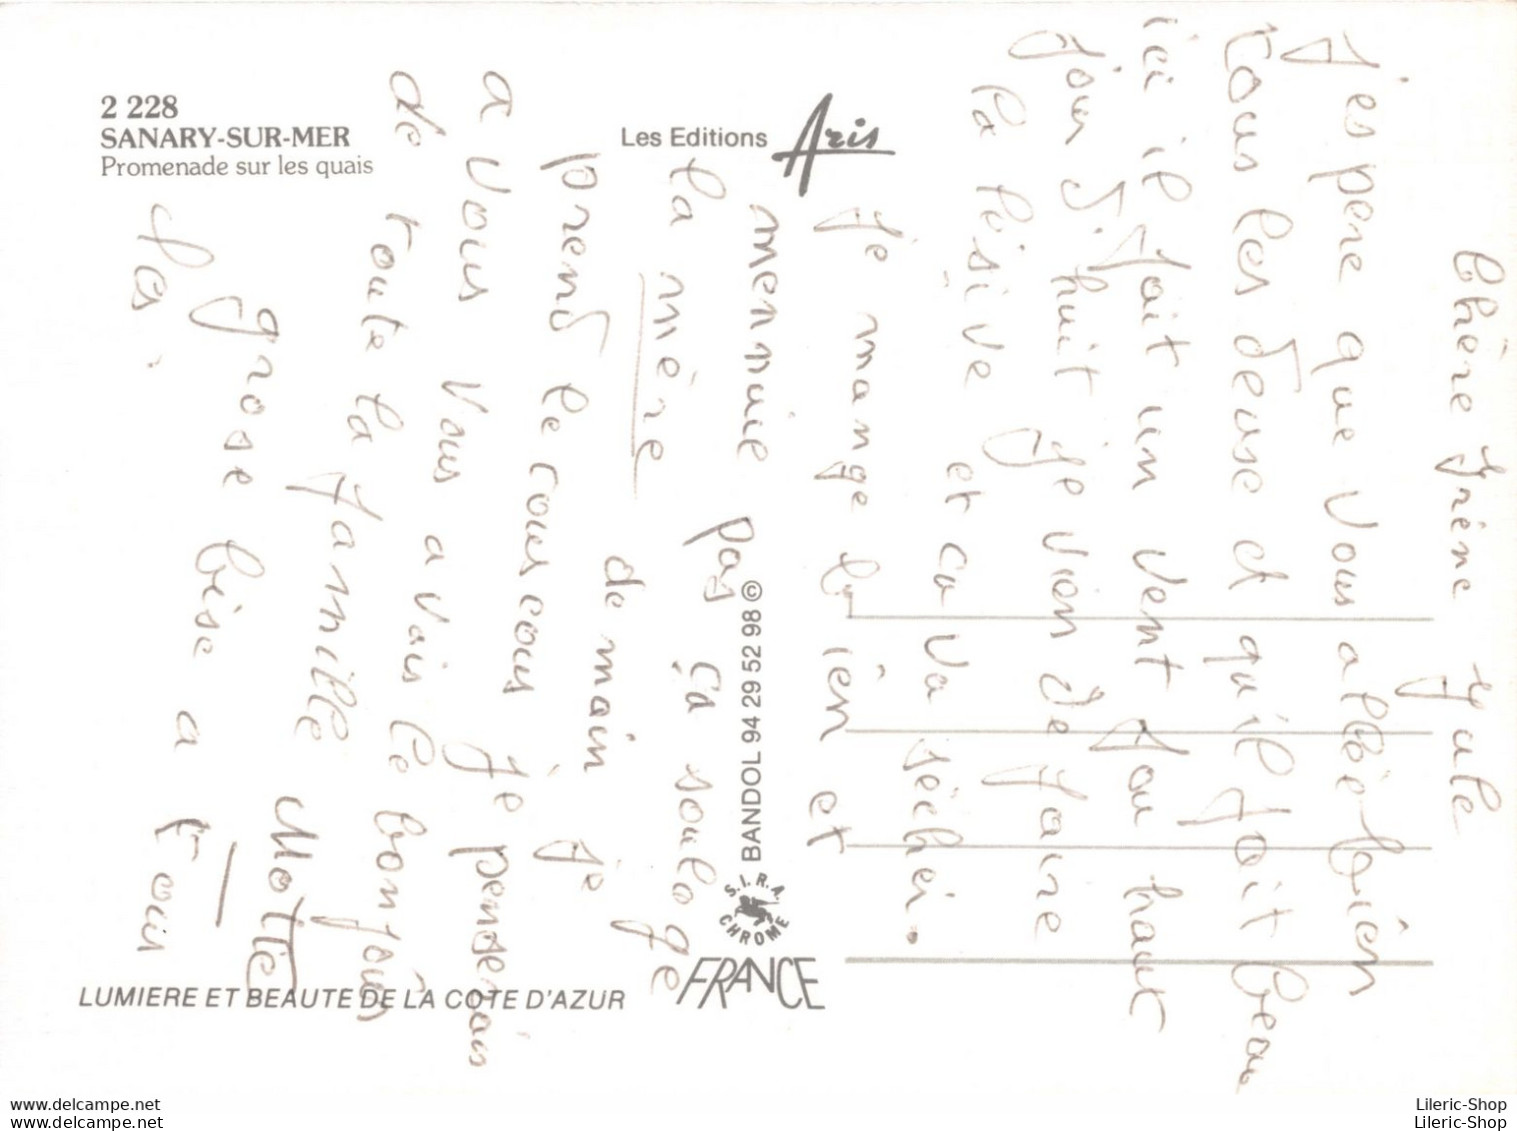 2 228
SANARY-SUR-MER
Promenade sur les quais
Les Editions Aris
BANDOL 94 29 52 98 ©
S.I.R.A.
CHROME
FRANCE
LUMIERE ET BEAUTE DE LA COTE D'AZUR
Chère Irène Jule
J'espere que vous allée bièn
tous les deuse et qu'il fait beau
ici il fait un vent fou haut
jour d'huit je vien de faire
la lésive et ca va séchéi.
Je mange bièn et
mennuie pas ça soulage
la mère
de main je
prend le cour cour je pensérais
a vous vous avais le bonjour
de toute la famille Motte
grosse bise a tous
Lileric-Shop
www.delcampe.net